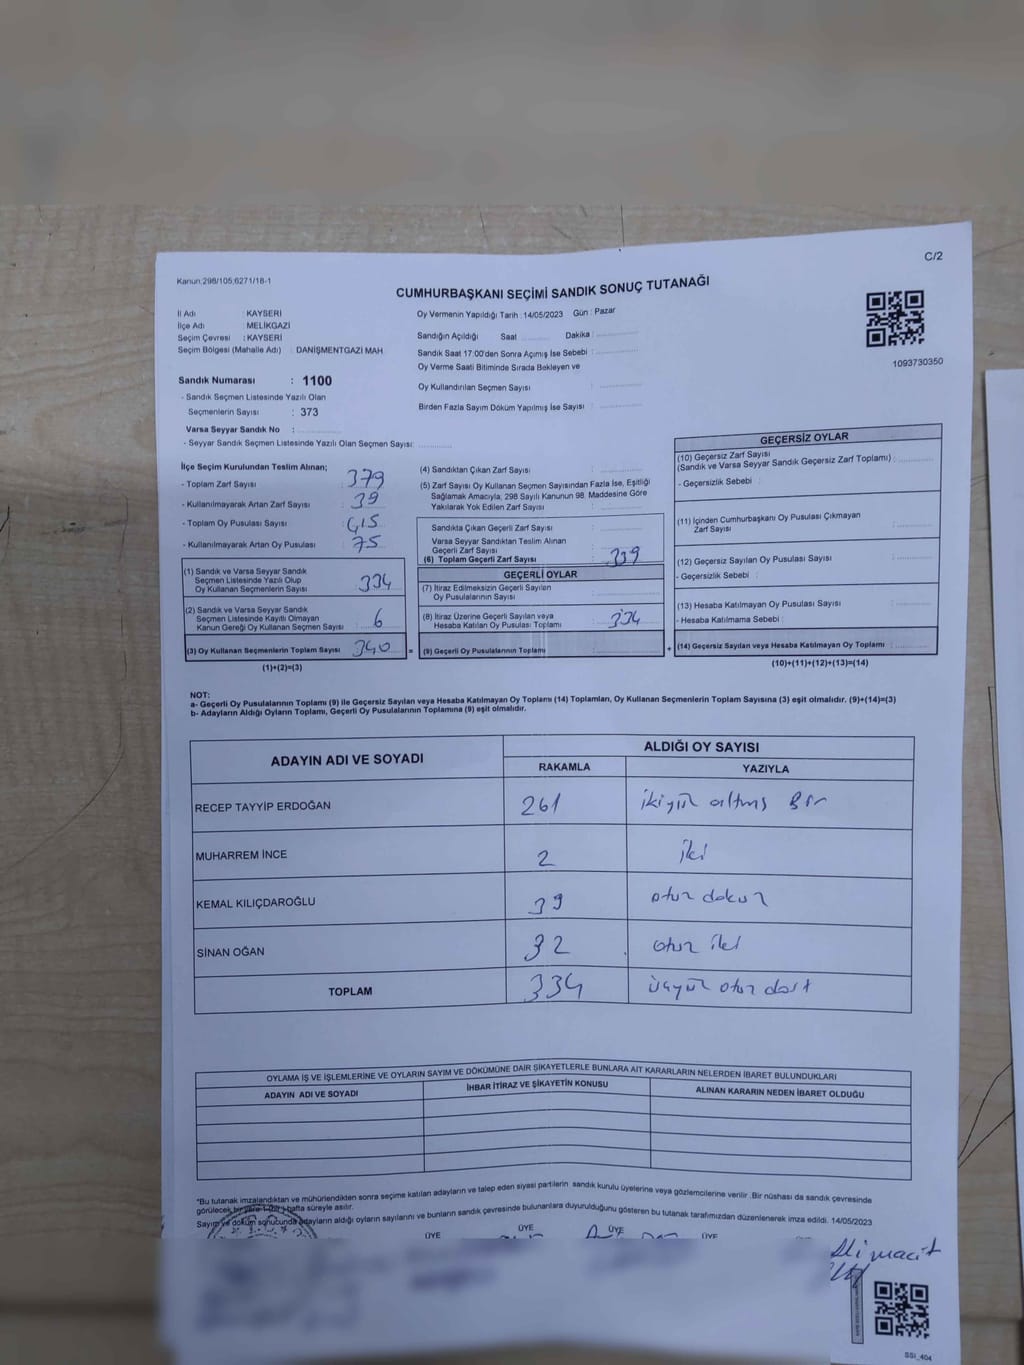 C/2
Kanun:298/105,6271/18-1
CUMHURBAŞKANI SEÇİMİ SANDIK SONUÇ TUTANAĞI
İl Adı : KAYSERİ
İlçe Adı : MELİKGAZİ
Seçim Çevresi : KAYSERİ
Seçim Bölgesi (Mahalle Adı) : DANİŞMENTGAZİ MAH.
Sandık Numarası : 1100
- Sandık Seçmen Listesinde Yazılı Olan
Seçmenlerin Sayısı : 373
Varsa Seyyar Sandık No :
- Seyyar Sandık Seçmen Listesinde Yazılı Olan Seçmen Sayısı:
Oy Vermenin Yapıldığı Tarih : 14/05/2023 Gün : Pazar
Sandığın Açıldığı Saat Dakika :
Sandık Saat 17:00'den Sonra Açımış İse Sebebi :
Oy Verme Saati Bitiminde Sırada Bekleyen ve
Oy Kullandırılan Seçmen Sayısı :
Birden Fazla Sayım Döküm Yapılmış İse Sayısı :
1093730350
İlçe Seçim Kurulundan Teslim Alınan;
- Toplam Zarf Sayısı : 379
- Kullanılmayarak Artan Zarf Sayısı : 39
- Toplam Oy Pusulası Sayısı : 415
- Kullanılmayarak Artan Oy Pusulası : 75
(1) Sandık ve Varsa Seyyar Sandık
Seçmen Listesinde Yazılı Olup
Oy Kullanan Seçmenlerin Sayısı : 334
(2) Sandık ve Varsa Seyyar Sandık
Seçmen Listesinde Kayıtlı Olmayan
Kanun Gereği Oy Kullanan Seçmen Sayısı : 6
(3) Oy Kullanan Seçmenlerin Toplam Sayısı : 340 =
(1)+(2)=(3)
(4) Sandıktan Çıkan Zarf Sayısı :
(5) Zarf Sayısı Oy Kullanan Seçmen Sayısından Fazla İse, Eşitliği
Sağlamak Amacıyla, 298 Sayılı Kanunun 98. Maddesine Göre
Yakılarak Yok Edilen Zarf Sayısı :
Sandıkta Çıkan Geçerli Zarf Sayısı :
Varsa Seyyar Sandıktan Teslim Alınan
Geçerli Zarf Sayısı :
(6) Toplam Geçerli Zarf Sayısı : 339
GEÇERLİ OYLAR
(7) İtiraz Edilmeksizin Geçerli Sayılan
Oy Pusulalarının Sayısı :
(8) İtiraz Üzerine Geçerli Sayılan veya
Hesaba Katılan Oy Pusulası Toplamı : 334
(9) Geçerli Oy Pusulalarının Toplamı : +
GEÇERSİZ OYLAR
(10) Geçersiz Zarf Sayısı
(Sandık ve Varsa Seyyar Sandık Geçersiz Zarf Toplamı) :
- Geçersizlik Sebebi :
(11) İçinden Cumhurbaşkanı Oy Pusulası Çıkmayan
Zarf Sayısı :
(12) Geçersiz Sayılan Oy Pusulası Sayısı :
- Geçersizlik Sebebi :
(13) Hesaba Katılmayan Oy Pusulası Sayısı :
- Hesaba Katılmama Sebebi :
(14) Geçersiz Sayılan veya Hesaba Katılmayan Oy Toplamı :
(10)+(11)+(12)+(13)=(14)
NOT:
a- Geçerli Oy Pusulalarının Toplamı (9) ile Geçersiz Sayılan veya Hesaba Katılmayan Oy Toplamı (14) Toplamları, Oy Kullanan Seçmenlerin Toplam Sayısına (3) eşit olmalıdır. (9)+(14)=(3)
b- Adayların Aldığı Oyların Toplamı, Geçerli Oy Pusulalarının Toplamına (9) eşit olmalıdır.
ADAYIN ADI VE SOYADI
ALDIĞI OY SAYISI
RAKAMLA YAZIYLA
RECEP TAYYİP ERDOĞAN 261 ikiyüz altmış Bir
MUHARREM İNCE 2 iki
KEMAL KILIÇDAROĞLU 39 otuz dokuz
SİNAN OĞAN 32 otuz iki
TOPLAM 334 üçyüz otuz dört
OYLAMA İŞ VE İŞLEMLERİNE VE OYLARIN SAYIM VE DÖKÜMÜNE DAİR ŞİKAYETLERLE BUNLARA AİT KARARLARIN NELERDEN İBARET BULUNDUKLARI
ADAYIN ADI VE SOYADI İHBAR İTİRAZ VE ŞİKAYETİN KONUSU ALINAN KARARIN NEDEN İBARET OLDUĞU
"Bu tutanak imzalandıktan ve mühürlendikten sonra seçime katılan adayların ve talep eden siyasi partilerin sandık kurulu üyelerine veya gözlemcilerine verilir. Bir nüshası da sandık çevresinde
görülecek bir yere 1 (bir) hafta süreyle asılır.
Sayım ve döküm sonucunda adayların aldığı oyların sayılarını ve bunların sandık çevresinde bulunanlara duyurulduğunu gösteren bu tutanak tarafımızdan düzenlenerek imza edildi. 14/05/2023
ÜYE ÜYE ÜYE ÜYE
SSI_404